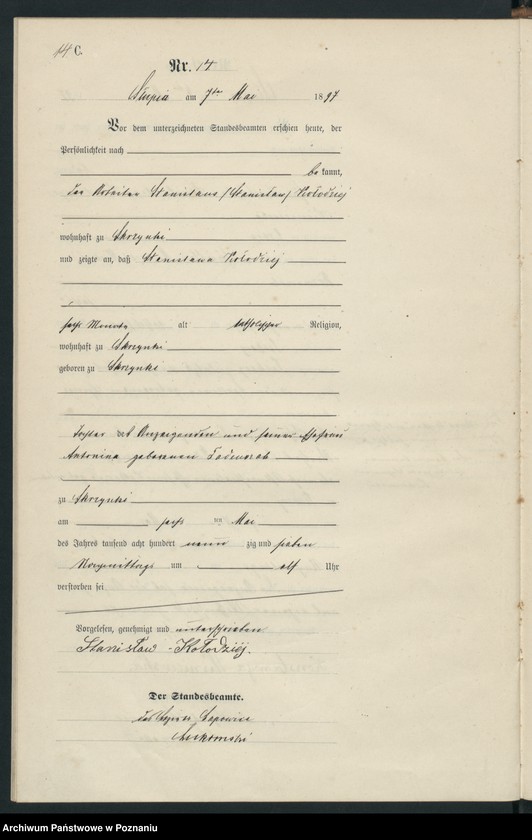 14 C.
Nr. 14
Słupia am 7ten Mai 1897
Vor dem unterzeichneten Standesbeamten erschien heute, der
Persönlichkeit nach
be kannt,
der Arbeiter Stanislaus (Stanisław) Kołodziej
wohnhaft zu Skrzynki
und zeigte an, daß Stanislawa Kołodziej
sechs Monate alt katholischer Religion,
wohnhaft zu Skrzynki
geboren zu Skrzynki
Tochter des Anzeigenden und seiner Ehefrau
Antonina geborenen
zu Skrzynki
am sechs ten Mai
des Jahres tausend acht hundert neun zig und sieben
Vormittags um elf Uhr
verstorben sei
Vorgelesen, genehmigt und unterschrieben
Stanisław Kołodziej.
Der Standesbeamte.
Archiwum Państwowe w Poznaniu